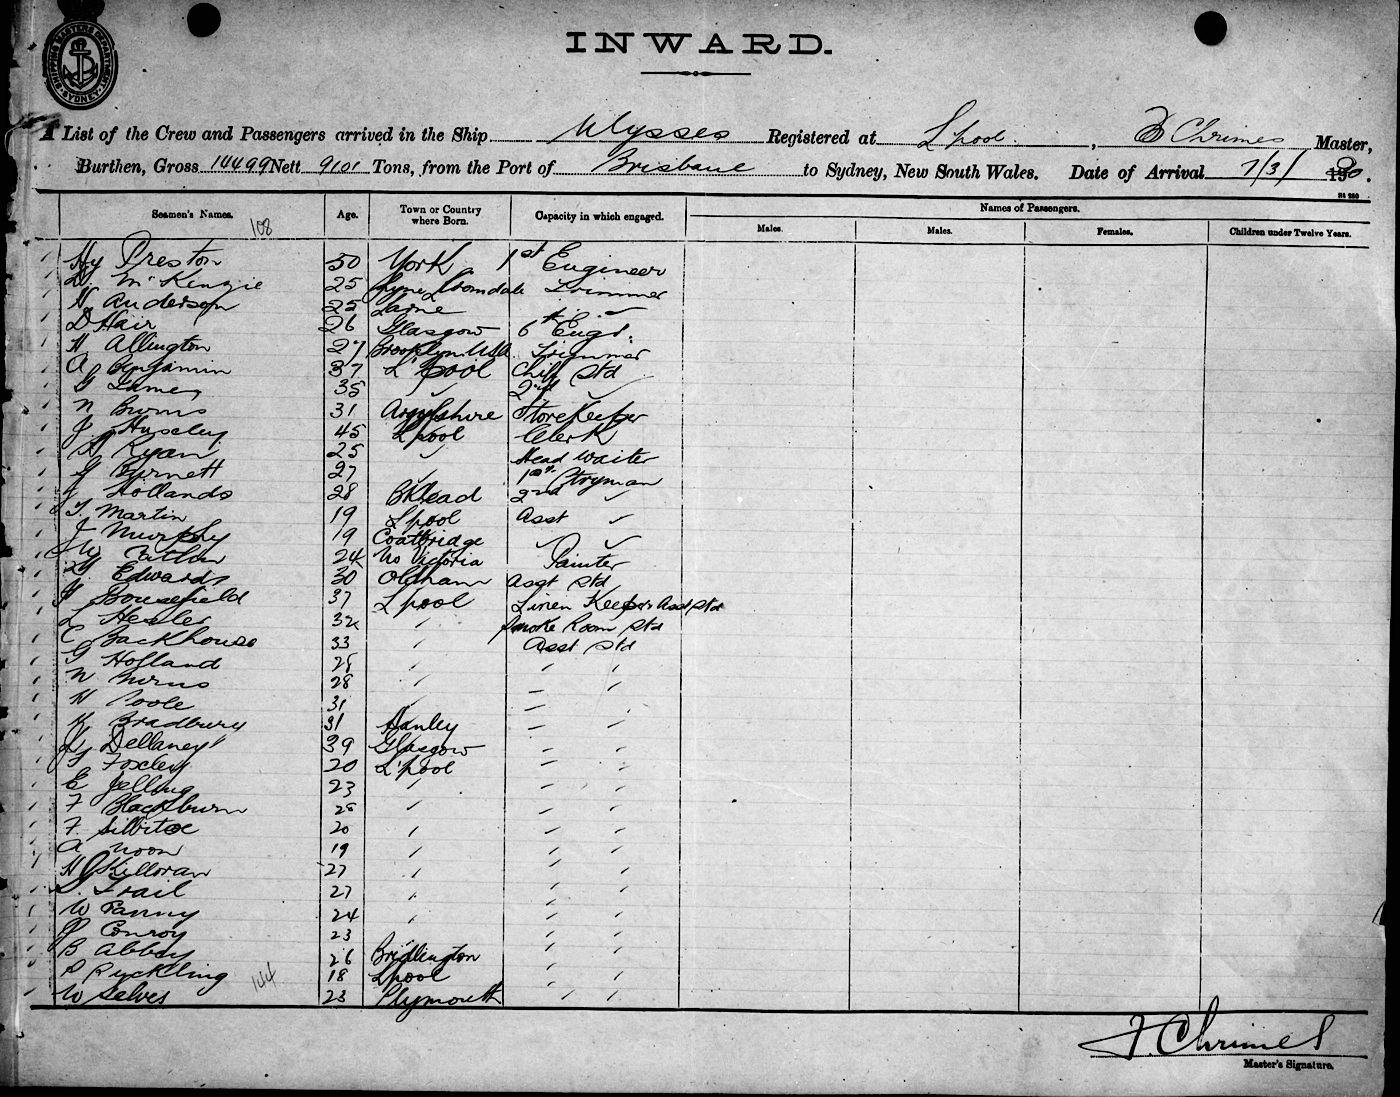 SHIPPING MASTERS DEPARTMENT SYDNEY
INWARD.
A List of the Crew and Passengers arrived in the Ship Ulysses Registered at L'pool. , F Chrimes Master,
Burthen, Gross 14499 Nett 9101 Tons, from the Port of Brisbane to Sydney, New South Wales. Date of Arrival 7/3/ 1920.
Seamen's Names. 108 Age. Town or Country where Born. Capacity in which engaged. Names of Passengers.
Males. Males. Females. Children under Twelve Years.
Hy Preston 50 York 1st Engineer
D McKenzie 25 Trimmer
W Anderson 25 Larne "
D Hair 26 Glasgow 6th Engr.
H Allington 27 Brooklyn USA Trimmer
A Benjamin 37 L'pool Chief Std
G James 35 " 2nd "
N Burns 31 Argylshire Storekeeper
J Huxley 45 L'pool Clerk
D Ryan 25 " Head Waiter
J Byrnett 27 " 1st Ptryman
J Hollands 28 B'Head 2nd "
T. Martin 19 L'pool Asst "
J Murphy 19 Coatbridge " "
W 24 Victoria Painter
H. Edwards 30 Oldham Asst Std
F Housefield 37 L'pool Linen Keeper Asst Std
L Hesler 32 " Smoke Room Std
C Backhouse 33 " Asst Std
G Holland 28 " " "
N Burns 28 " " "
H Poole 31 " " "
H Bradbury 31 Hanley " "
J Dellaney 39 Glasgow " "
J Foxley 20 L'pool " "
E Jelling 23 " " "
F Blackburn 28 " " "
F. Sillitoe 20 " " "
A Noon 19 " " "
H Killoran 27 " " "
S. Trail 27 " " "
W Fanny 24 " " "
P Conroy 23 " " "
B Abbey 26 Bridlington " "
R Ryckling 144 18 L'pool " "
W Selves 23 Plymouth " "
F. Chrimes
Master's Signature.